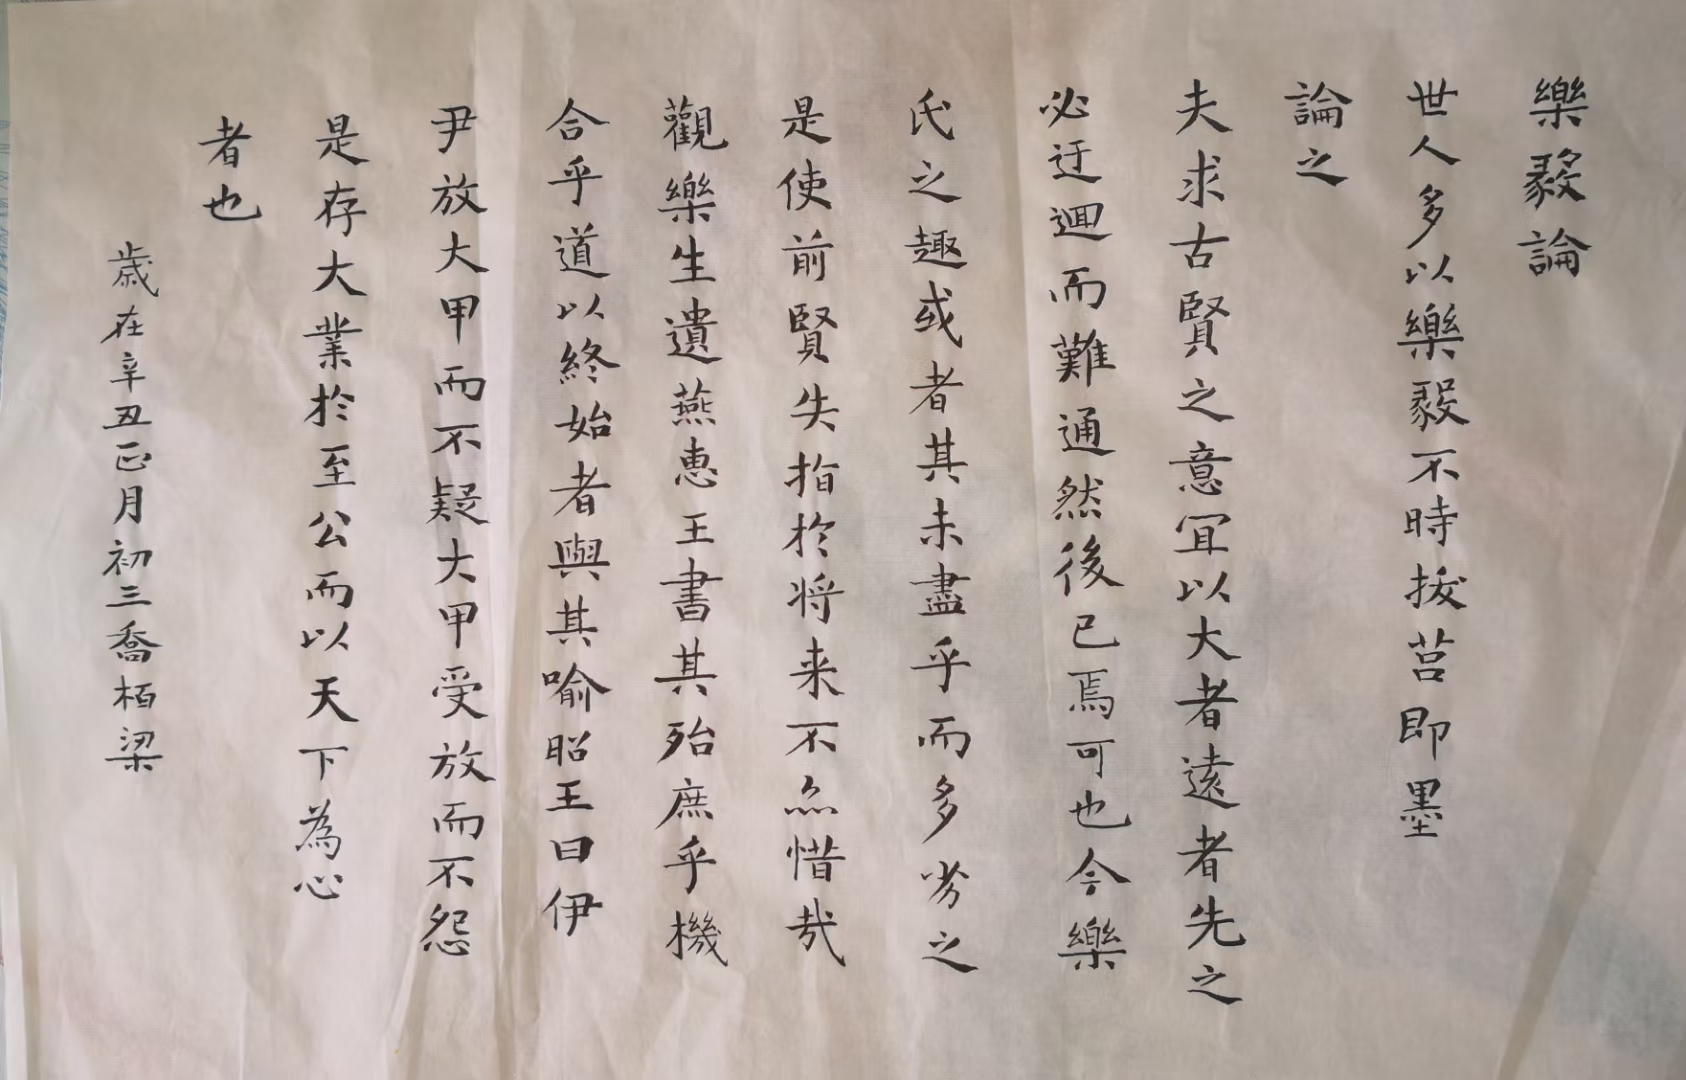 樂毅論
世人多以樂毅不時拔莒即墨
論之
夫求古賢之意宜以大者遠者先之
必迂迴而難通然後已焉可也今樂
氏之趣或者其未盡乎而多劣之
是使前賢失指於将来不亦惜哉
觀樂生遺燕惠王書其殆庶乎機
合乎道以終始者與其喻昭王曰伊
尹放大甲而不疑大甲受放而不怨
是存大業於至公而以天下為心
者也
歲在辛丑正月初三喬栢梁